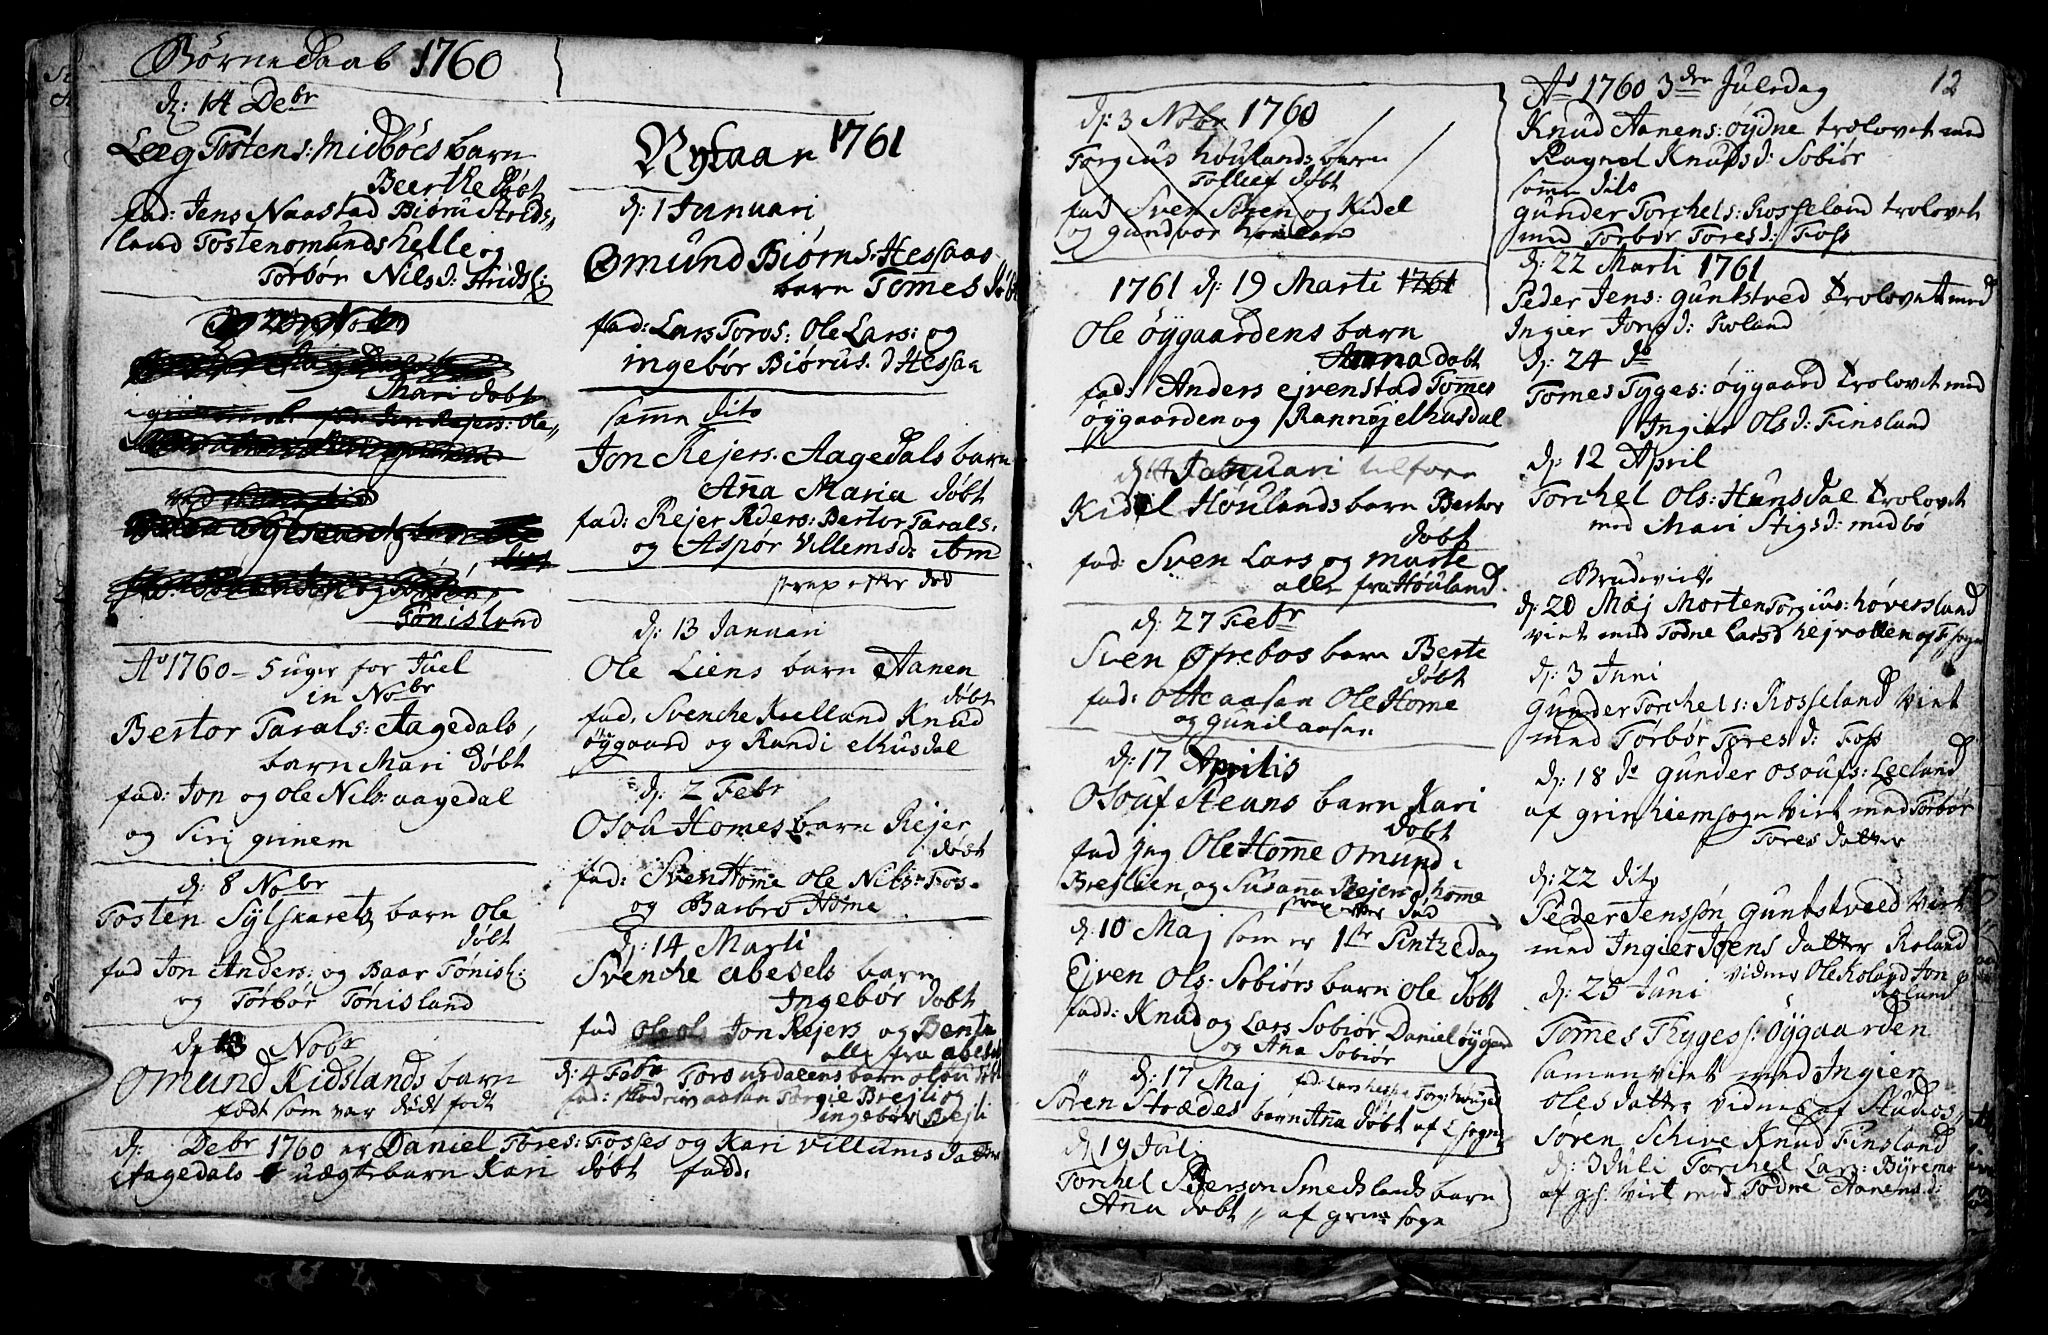 Børne Daab 1760
d: 14 Debr
Leeg Tostens: Midbøes barn
Beerthe døbt
fad: Jens Naastad Biøru Strids„
land Tosten omunds helle og
Torbør Nilsd: Stridsl:
Mari døbt
Tønisland
Ao 1760 – 5 uger for Juel
in Nobr
Bertor Tarals: Aagedals,
barn Mari Døbt
fad: Jon og Ole Nils: aagedal
og Siri grinem
d: 8 Nobr
Tosten Sylskarets barn Ole
døbt
fad Jon Anders: og Baar Tønisl:
og Torbør Tønisland
d: 13 Nobr
Omund Kidslands barn
født som var dødt født
d: Debr 1760 er Daniel Tores: Fosses og Kari Villums Datter
Aagedals uægte barn Kari døbt fadd:
Nytaar 1761
d: 1 Januari
Omund Biørns: Hessaas
barn Tomes døbt
fad: Lars Toros: Ole Lars: og
ingebør Biørus: d Hessaa
samme dito
Jon Rejers: Aagedals barn
Anna Maria døbt
fad: Rejer Reders: Bertor Tarals:
og Aspor Villemsd: ibm
strax efter død
d: 13 Januari
Ole Liens barn Aanen
døbt
fad. Svenche Kielland Knud
øygaard og Randi elhusdal
d: 2 Febr
Osou Homes barn Rejer
døbt
fad: Sven Homme Ole Nils: Fos
og Barbro Home
d: 14 Marti
Svenche abesels barn
Ingebør døbt
fad ole ol Jon Rejers og Benta
alle fra abesel
d: 4 Febr Tors urdalens barn olou døbt
fad: aasan Torgie Brejli og
ingebør Brejli
12
d: 3 Nobr 1760
Torgius høulands barn
Tollief døbt
fad Sven Soren og Kidel
og gundvor houland
1761 d: 19 Marti 1761
Ole øygaardens barn
Anna døbt
fad: Anders ejvenstad Tommes
øygaarden og Rannøj elhusdal
d: 4 Januari tilforn
Kidel Høulands barn Bertor
døbt
fad: Sven Lars og marte
alle fra Høuland.
d: 27 Febr
Sven Øfrebos barn Berte
døbt
fad: Otte aasen Ole Home
og gunil aasen
d: 17 Aprilis
Osouf Steans barn Kari
døbt
fad jeg Ole Homme Omund
Brejlien og Susanna Rejers d homme
strax efter død
d: 10 Maj som er 1ste Pintzedag
Ejven Ols: Sobiørs barn Ole døbt
fadd: Knud og Lars Sobiør Daniel øygard
og Anna Sobiør
d: 17 Maj fad: Lars
Søren Strædes barn Anna døbt af sogn
d: 19 Jul:
Torchel Pederson Smedslands barn
Anna døbt „ af grin: sogn
Ao 1760 3den Juledag
Knud Aanens: øydne trolovet med
Ragnel Knudsd: Sobiør
samme dito
Gunder Torchels: Rosseland trolovet
med Torbør Toresd: Foss
d: 22 Marti 1761
Peder Jens: guntstved trolovet med
Ingier Jons d: Roland
d: 24 do
Tomes Tyges: øygaard trolovet med
Ingier Olsd: Finsland
d: 12 April
Torchel Ols: Hunsdal trolovet
med Mari Stigsd: medbø
Brudeviede
d: 20 Maj Morten Torgius: høversland
viet med Todne Larsd hejrollen sogn
d: 3 Juni
Gunder Torchels: Rosseland viet
med Torbør Tores d: Foss
d: 18 do gunder Osoufs: Leeland
af grinhiem sogn viet med Torbør
Tores datter
d: 22 dito
Peder Jenssøn guntstveed viet
med Ingier Joens datter Roland
vidner Ole Roland Jon
Roland
d: 25 Juni
Tommes Tygess: Øygaarden
samenviet med Ingier
oles datter vidnes af Audios,
Søren Schive Knud Finsland
d: 3 Juli Torchel Lars: Byremo
af gs: viet med Todne Aanens d: